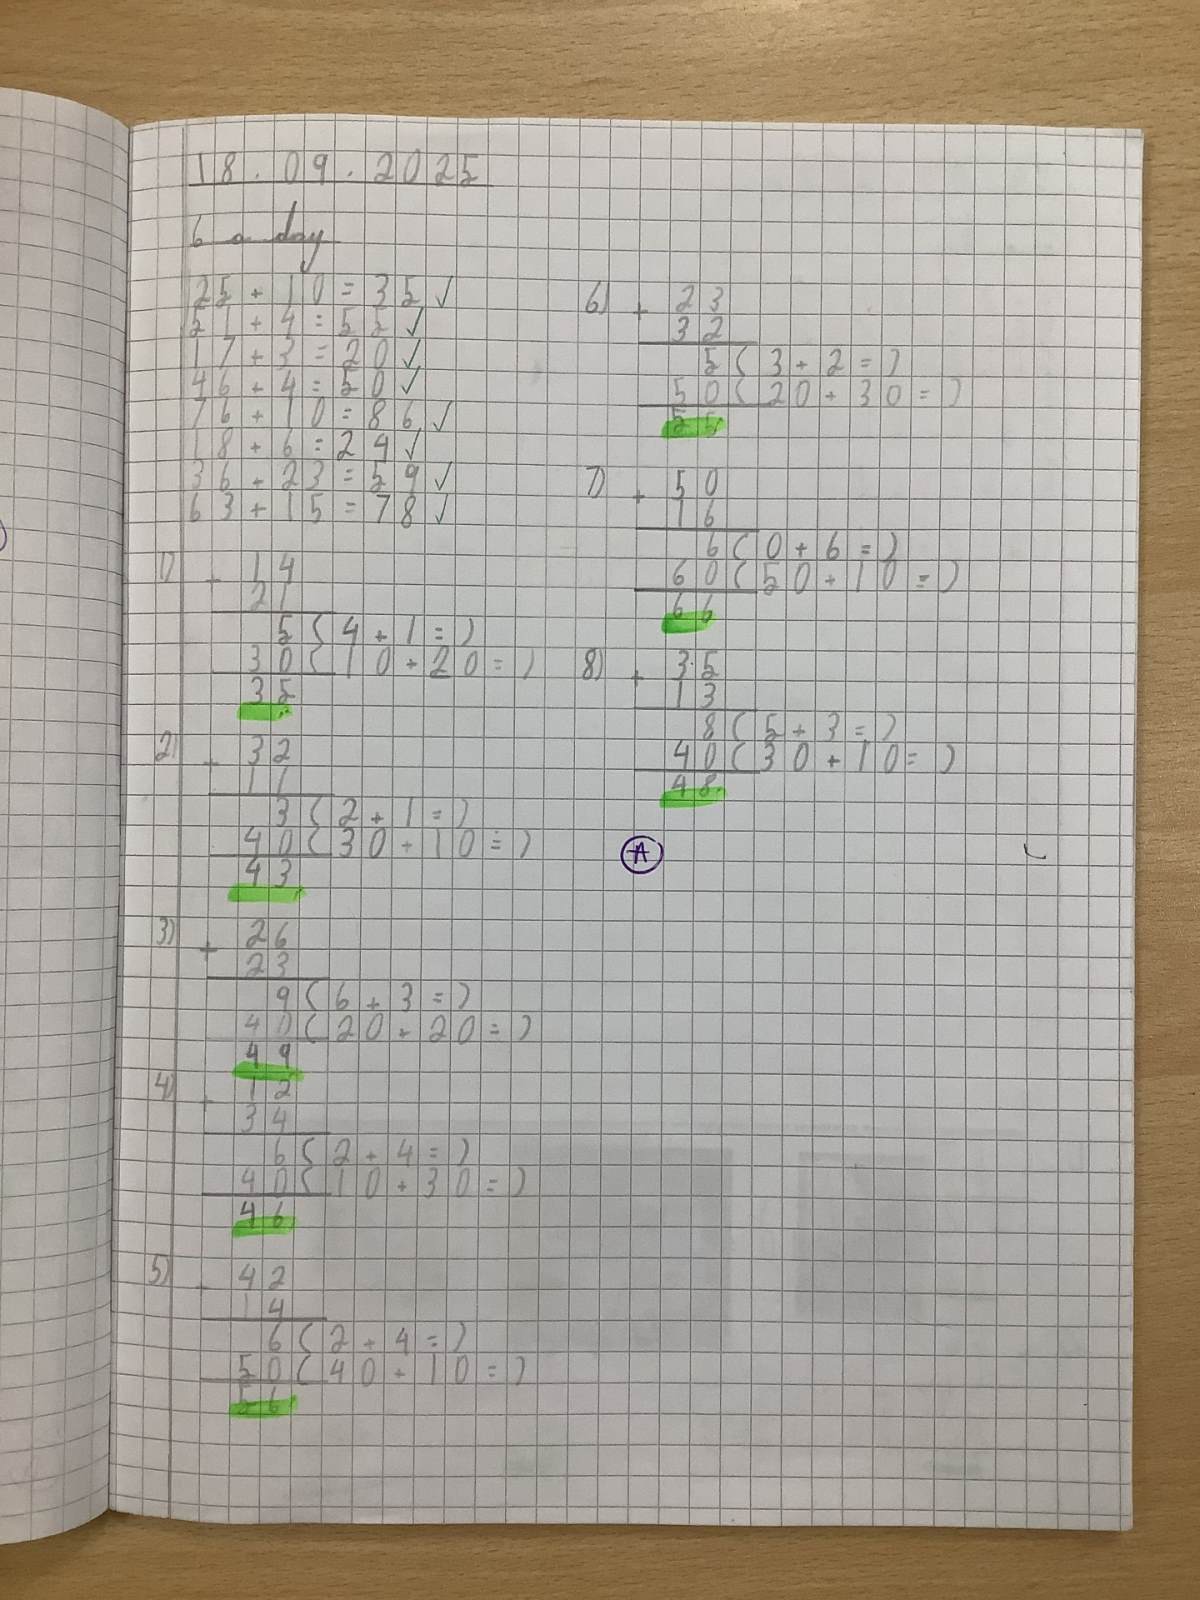 18.09.2025
6 a day
25 + 10 = 35 ✓
51 + 4 = 55 ✓
17 + 3 = 20 ✓
46 + 4 = 50 ✓
76 + 10 = 86 ✓
18 + 6 = 24 ✓
36 + 23 = 59 ✓
63 + 15 = 78 ✓
1) + 14
21
5 (4 + 1 = )
30 (10 + 20 = )
35
2) + 32
11
3 (2 + 1 = )
40 (30 + 10 = )
43
3) + 26
23
9 (6 + 3 = )
40 (20 + 20 = )
49
4) + 12
34
6 (2 + 4 = )
40 (10 + 30 = )
46
5) + 42
14
6 (2 + 4 = )
50 (40 + 10 = )
56
6) + 23
32
5 (3 + 2 = )
50 (20 + 30 = )
55
7) + 50
16
6 (0 + 6 = )
60 (50 + 10 = )
66
8) + 35
13
8 (5 + 3 = )
40 (30 + 10 = )
48
A